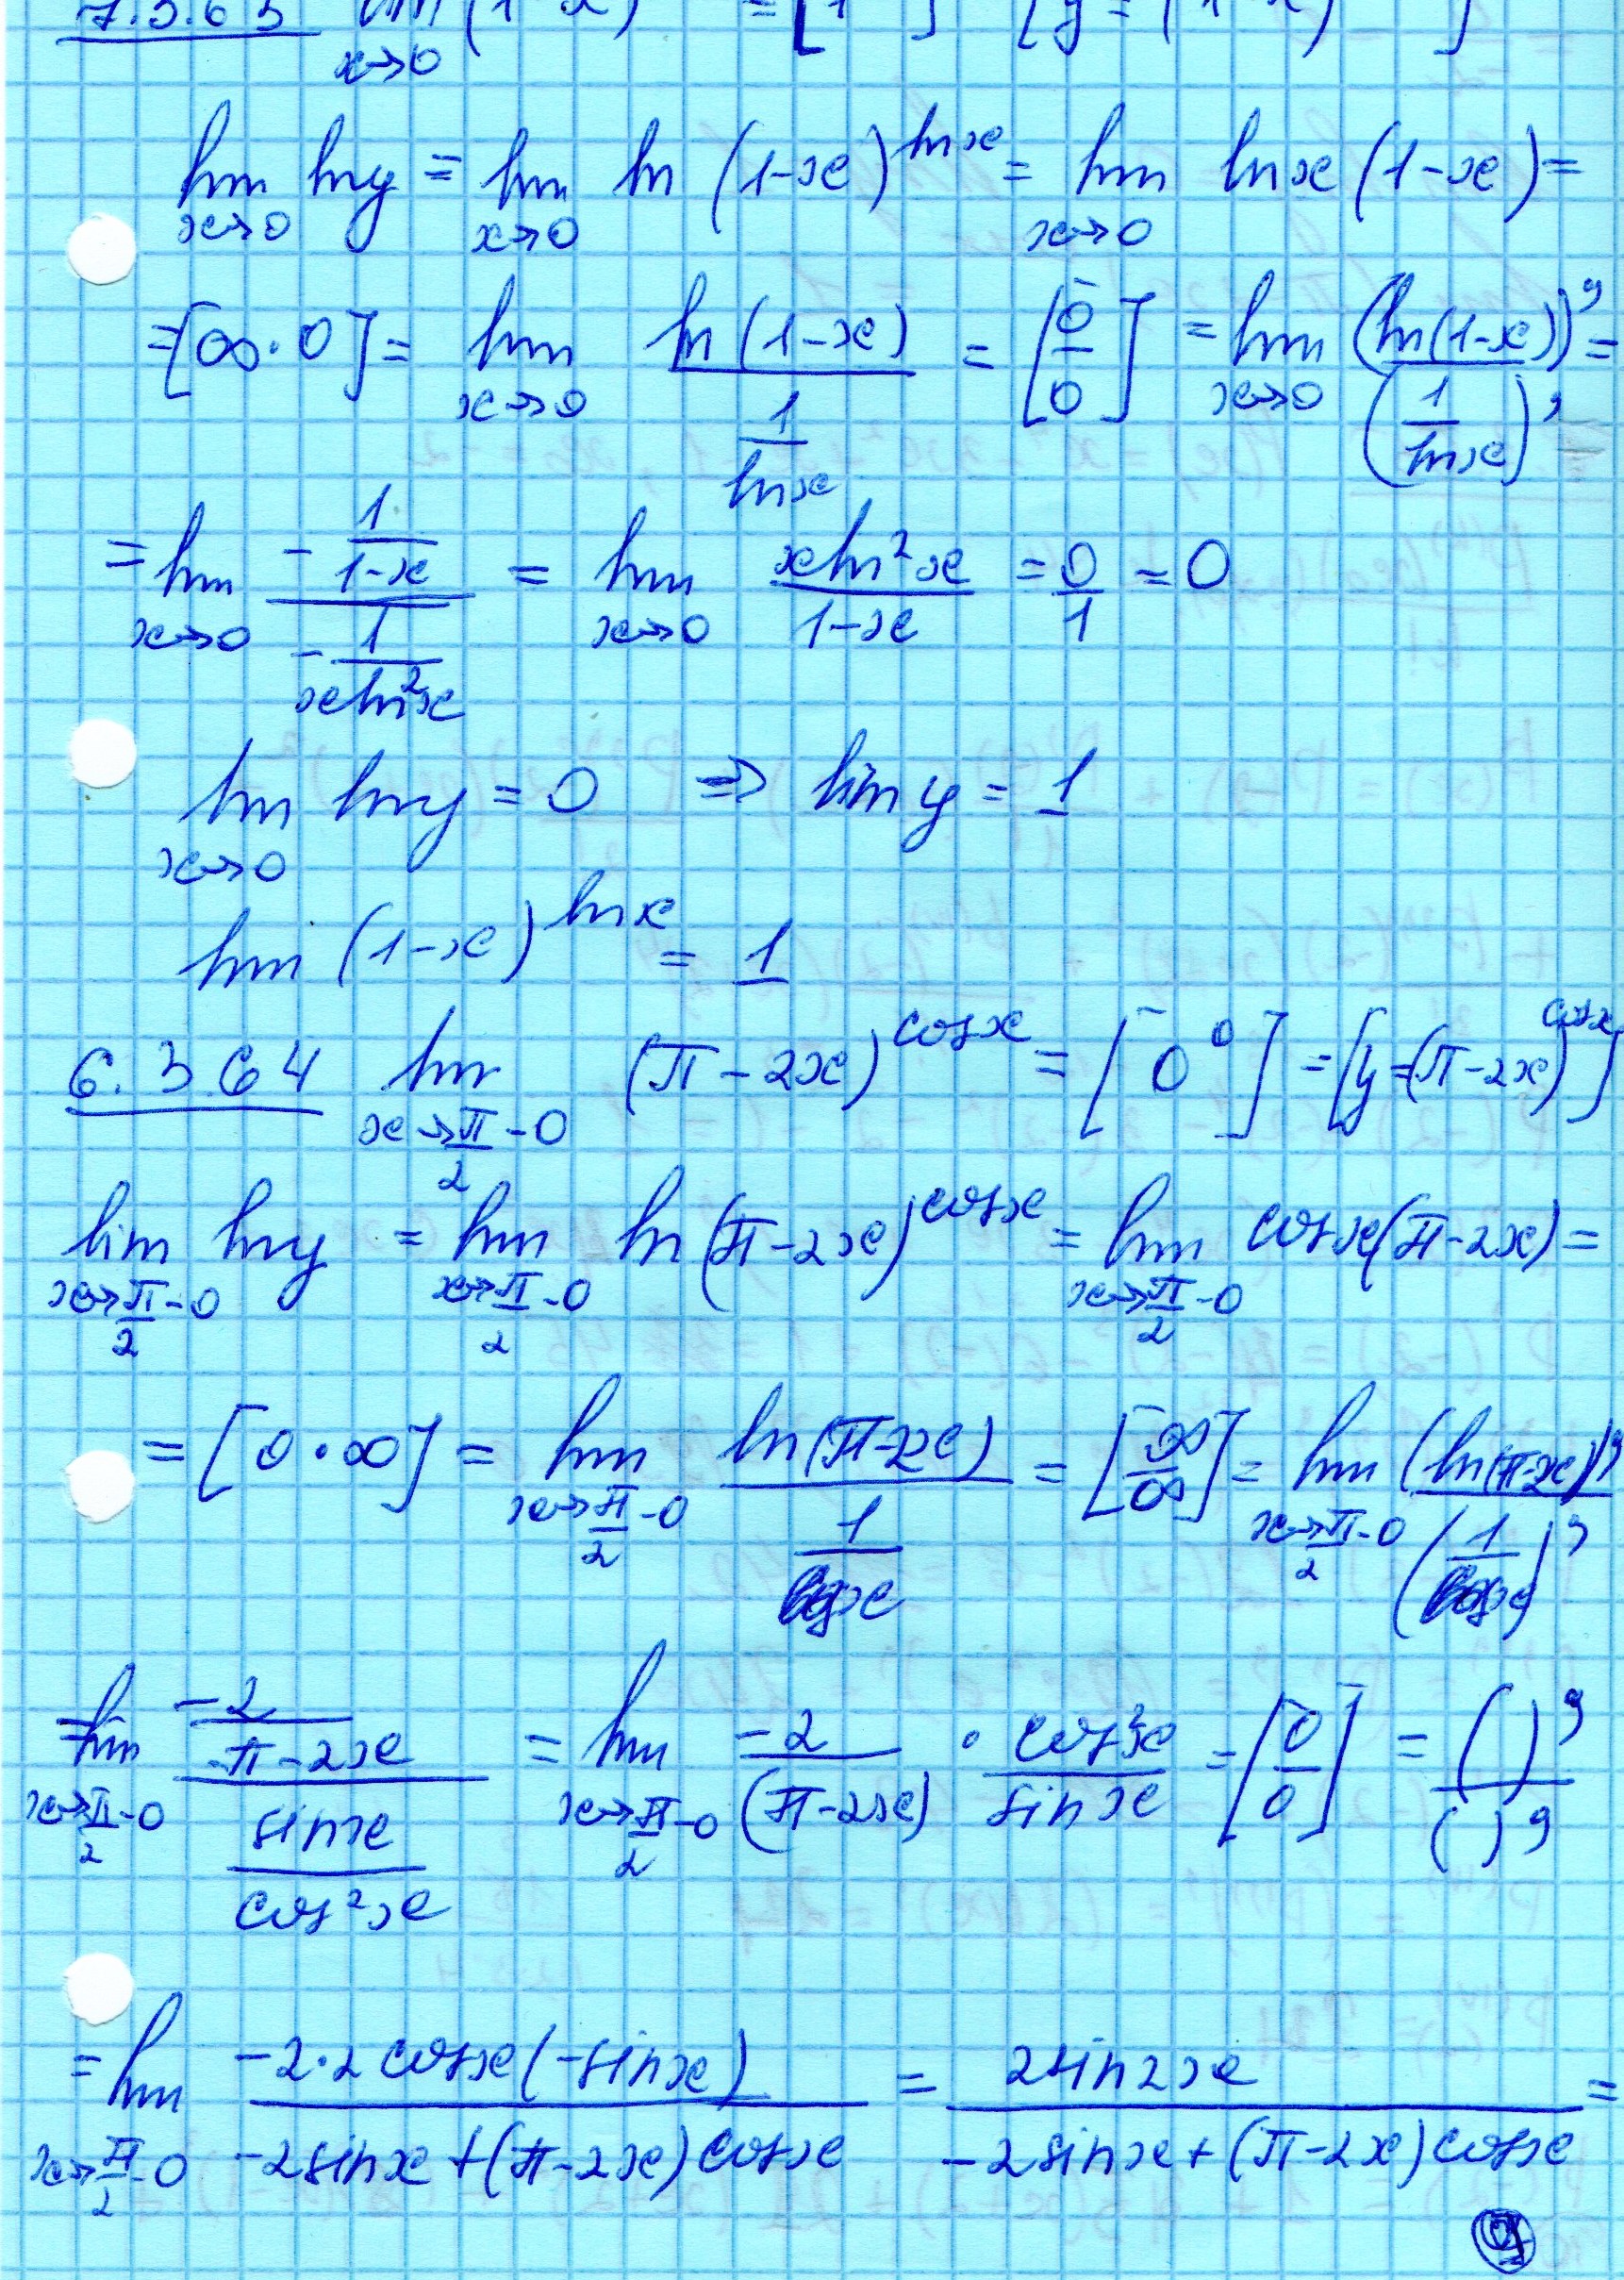 7.3.63 lim x→0 (1-x) = [1 ] [y = (1-x) ]
lim x→0 ln y = lim x→0 ln (1-x)^ln x = lim x→0 ln x (1-x) =
= [∞·0] = lim x→0 ln(1-x) / (1/ln x) = [0/0] = lim x→0 (ln(1-x))' / (1/ln x)' =
= lim x→0 (-1/(1-x)) / (-1/(x ln²x)) = lim x→0 (x ln²x)/(1-x) = 0/1 = 0
lim x→0 ln y = 0 ⇒ lim y = 1
lim (1-x)^ln x = 1
6.3.64 lim x→π/2-0 (π-2x)^cos x = [0^0] = [y=(π-2x)^cos x]
lim x→π/2-0 ln y = lim x→π/2-0 ln(π-2x)^cos x = lim x→π/2-0 cos x(π-2x) =
= [0·∞] = lim x→π/2-0 ln(π-2x) / (1/cos x) = [∞/∞] = lim x→π/2-0 (ln(π-2x))' / (1/cos x)'
= lim x→π/2-0 (-2/(π-2x)) / (sin x/cos²x) = lim x→π/2-0 -2/(π-2x) · cos²x/sin x = [0/0] = ( )'/( )'
= lim x→π/2-0 (-2·2cos x(-sin x)) / (-2sin x+(π-2x)cos x) = 2sin2x / (-2sin x+(π-2x)cos x) =